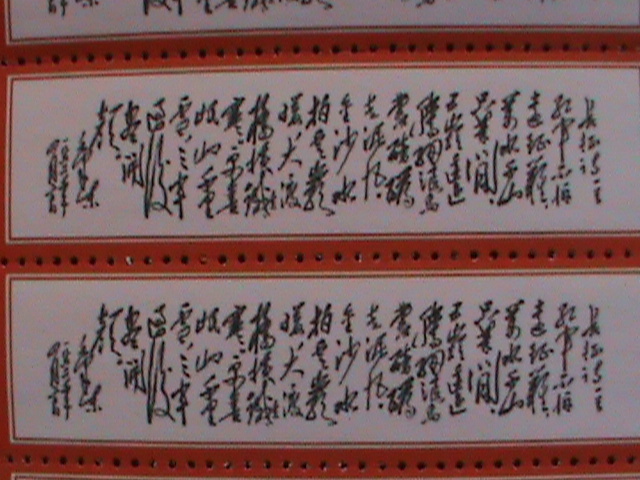 长征诗一首
红军不怕
远征难
万水千山
只等闲
五岭逶迤
腾细浪乌
蒙磅礴
走泥丸
金沙水
拍云崖
暖大渡
桥横铁索
寒更喜
岷山千里
雪三军
过后
尽开
颜
毛泽东
长征诗一首
红军不怕
远征难
万水千山
只等闲
五岭逶迤
腾细浪乌
蒙磅礴
走泥丸
金沙水
拍云崖
暖大渡
桥横铁索
寒更喜
岷山千里
雪三军
过后
尽开
颜
毛泽东